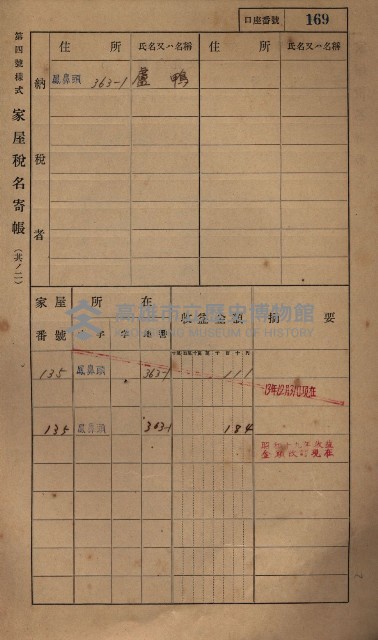 口座番號 169
第四號樣式 家屋稅名寄帳 (其ノ二)
納稅者
住所 氏名又ハ名稱 住所 氏名又ハ名稱
鳳鼻頭 363-1 盧鴨
家屋番號 所在 收益金額 摘要
大字 字 地番
135 鳳鼻頭 363-1 111
13年12月31日現在
135 鳳鼻頭 363-1 184
金額改訂現在
高雄市立歷史博物館
KAOHSIUNG MUSEUM OF HISTORY